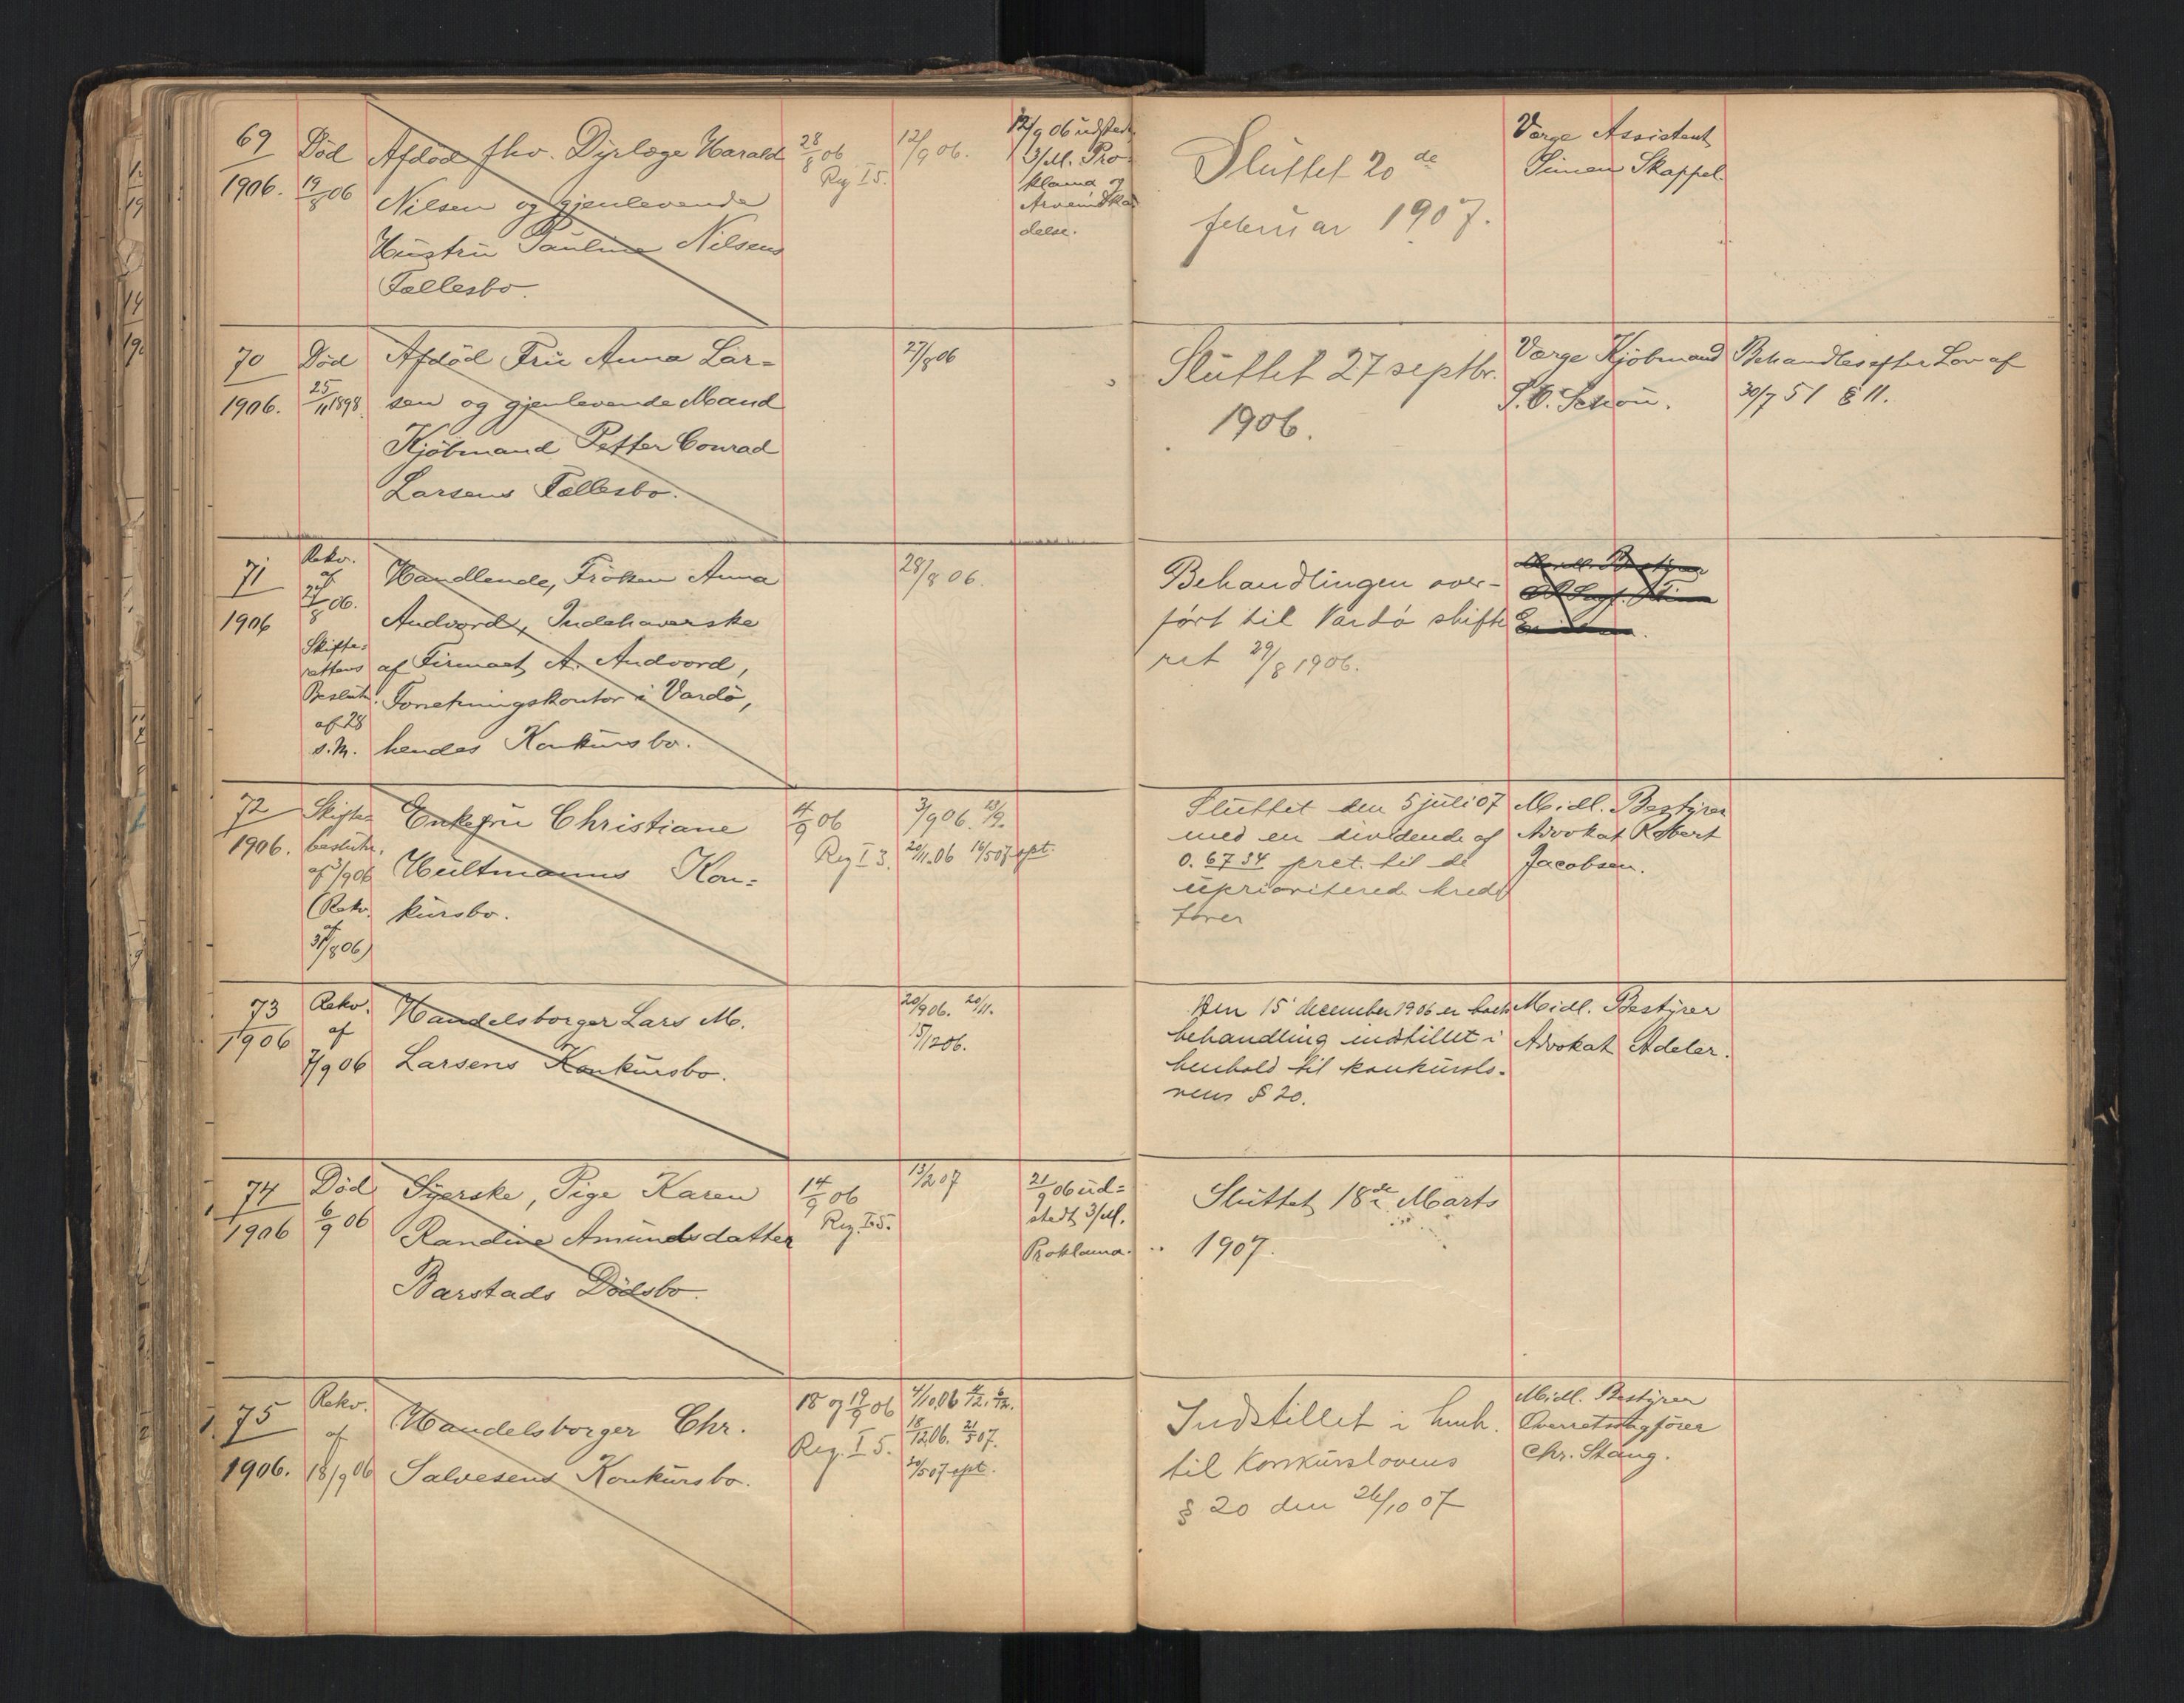 69
1906.
Død
19/8 06
Afdød fhv. Dyrlæge Harald
Nilsen og gjenlevende
Hustru Pauline Nilsens
Fællesbo.
28/8 06
Reg I 5.
12/9 06.
12/9 06 udstedt
3/M. Pro-
klama og
delse.
Sluttet 20 de
februar 1907.
Værge Assistent
Simen Skappel.
70
1906.
Død
25/11 1898.
Afdød Fru Anna Lar=
sen og gjenlevende Mand
Kjøbmand Petter Conrad
Larsens Fællesbo.
27/8 06
Sluttet 27 septbr.
1906.
Værge Kjøbmand
Schou.
Behandles efter Lov af
30/7 51 § 11.
71
1906
Rekv.
af
27/8 06.
Skifte=
rettens
Beslutn.
af 28
s. M.
Handlende, Frøken Anna
Andvord, Indehaverske
af Firmaet A. Andvord,
Forretningskontor i Vardø,
hendes Konkursbo.
28/8 06.
Behandlingen over-
ført til Vardø skifte
ret 29/8 1906.
72
1906.
Skifte=
beslutn.
af 3/9 06
(Rekv.
af
31/8 06)
Enkefru Christiane
Hultmanns Kon=
kursbo.
4/9 06
Reg I 3.
3/9 06. 13/9.
20/11 06 16/5 07 opt.
Sluttet den 5 juli 07
med en dividende af
0.6734 prct. til de
uprioriterede kredi
torer
Midl. Bestyrer
Advokat Robert
Jacobsen.
73
1906
Rekv.
af
7/9 06
Handelsborger Lars M.
Larsens Konkursbo.
20/9 06. 20/11.
15/12 06.
Den 15 december 1906 er boets
behandling indstillet i
henhold til konkurslo-
vens § 20.
Midl. Bestyrer
Advokat Adeler.
74
1906
Død
6/9 06
Syerske, Pige Karen
Randine Amundsdatter
Barstads Dødsbo.
14/9 06
Reg. I 5.
13/2 07
21/9 06 ud=
stedt 3/M.
Proklama.
Sluttet 18de Marts
1907.
75
1906.
Rekv.
af
18/9 06
Handelsborger Chr.
Salvesens Konkursbo.
18 og 19/9 06
Reg. I 5.
4/10 06 4/12. 6/12.
18/12 06. 21/5 07.
30/5 07 opt.
Indstillet i henh.
til Konkurslovens
§ 20 den 26/10 07
Midl. Bestyrer
Overretssagfører
Chr. Stang.